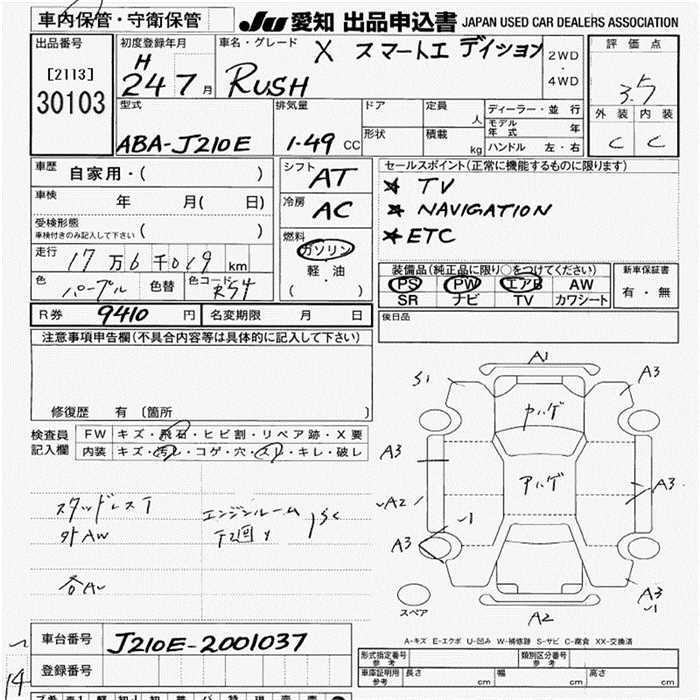 車内保管・守衛保管
JU 愛知 出品申込書 JAPAN USED CAR DEALERS ASSOCIATION
出品番号
[2113]
30103
初度登録年月
H
24 7月
車名・グレード
X スマートエディション
RUSH
2WD
・
4WD
評価点
3.5
外装 内装
C C
型式
ABA-J210E
排気量
1.49 CC
ドア
形状
定員
人
積載
kg
ディーラー・並行
モデル年式 年
ハンドル 左・右
車歴
自家用・( )
車検
年 月( 日)
受検形態
車検付きのみ記入して下さい ( )
走行
17万6千019 km
色
パープル
色替
色コード
シフト
AT
冷房
AC
燃料
ガソリン
軽・油
( )
セールスポイント(正常に機能するものに限ります)
★ TV
★ NAVIGATION
★ ETC
装備品(純正品に限り○をつけてください)
PS PW エアB AW
SR ナビ TV カワシート
新車保証書
有・無
R券 9410 円
名変期限 月 日
後日品
注意事項申告欄(不具合内容等は具体的に記入して下さい)
修復歴 有 〔箇所 〕
検査員
記入欄
FW キズ・飛石・ヒビ割・リペア跡・X要
内装 キズ・汚レ・コゲ・穴・スレ・キレ・破レ
スタッドレスT
外AW
エンジンルーム
A1
S1
A3
A3
A2
A3
A3
A3
A2
スペア
A-キズ E-エクボ U-凹み W-補修跡 S-サビ C-腐食 XX-交換済
車台番号 J210E-2001037
登録番号
型式指定番号
参考
類別区分番号
参考
車庫証明用
参考
長さ cm
幅 cm
高さ cm
14